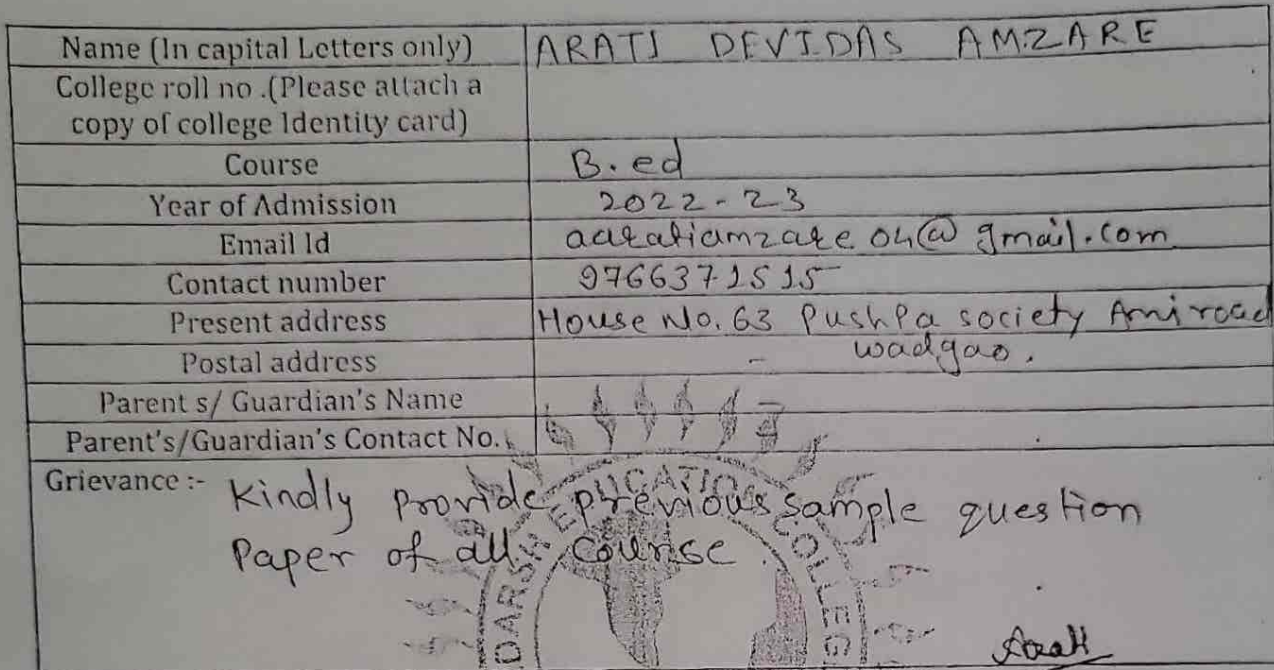 Name (In capital Letters only) ARATI DEVIDAS AMZARE
College roll no .(Please attach a
copy of college Identity card)
Course B.ed
Year of Admission 2022-23
Email Id aaratiamzare04@gmail.com
Contact number 9766371515
Present address House No. 63 Pushpa society Arni road
wadgao.
Postal address -
Parent s/ Guardian's Name
Parent's/Guardian's Contact No.
Grievance :- Kindly provide previous sample question
Paper of all course.
DARSH EDUCATION COLLEG